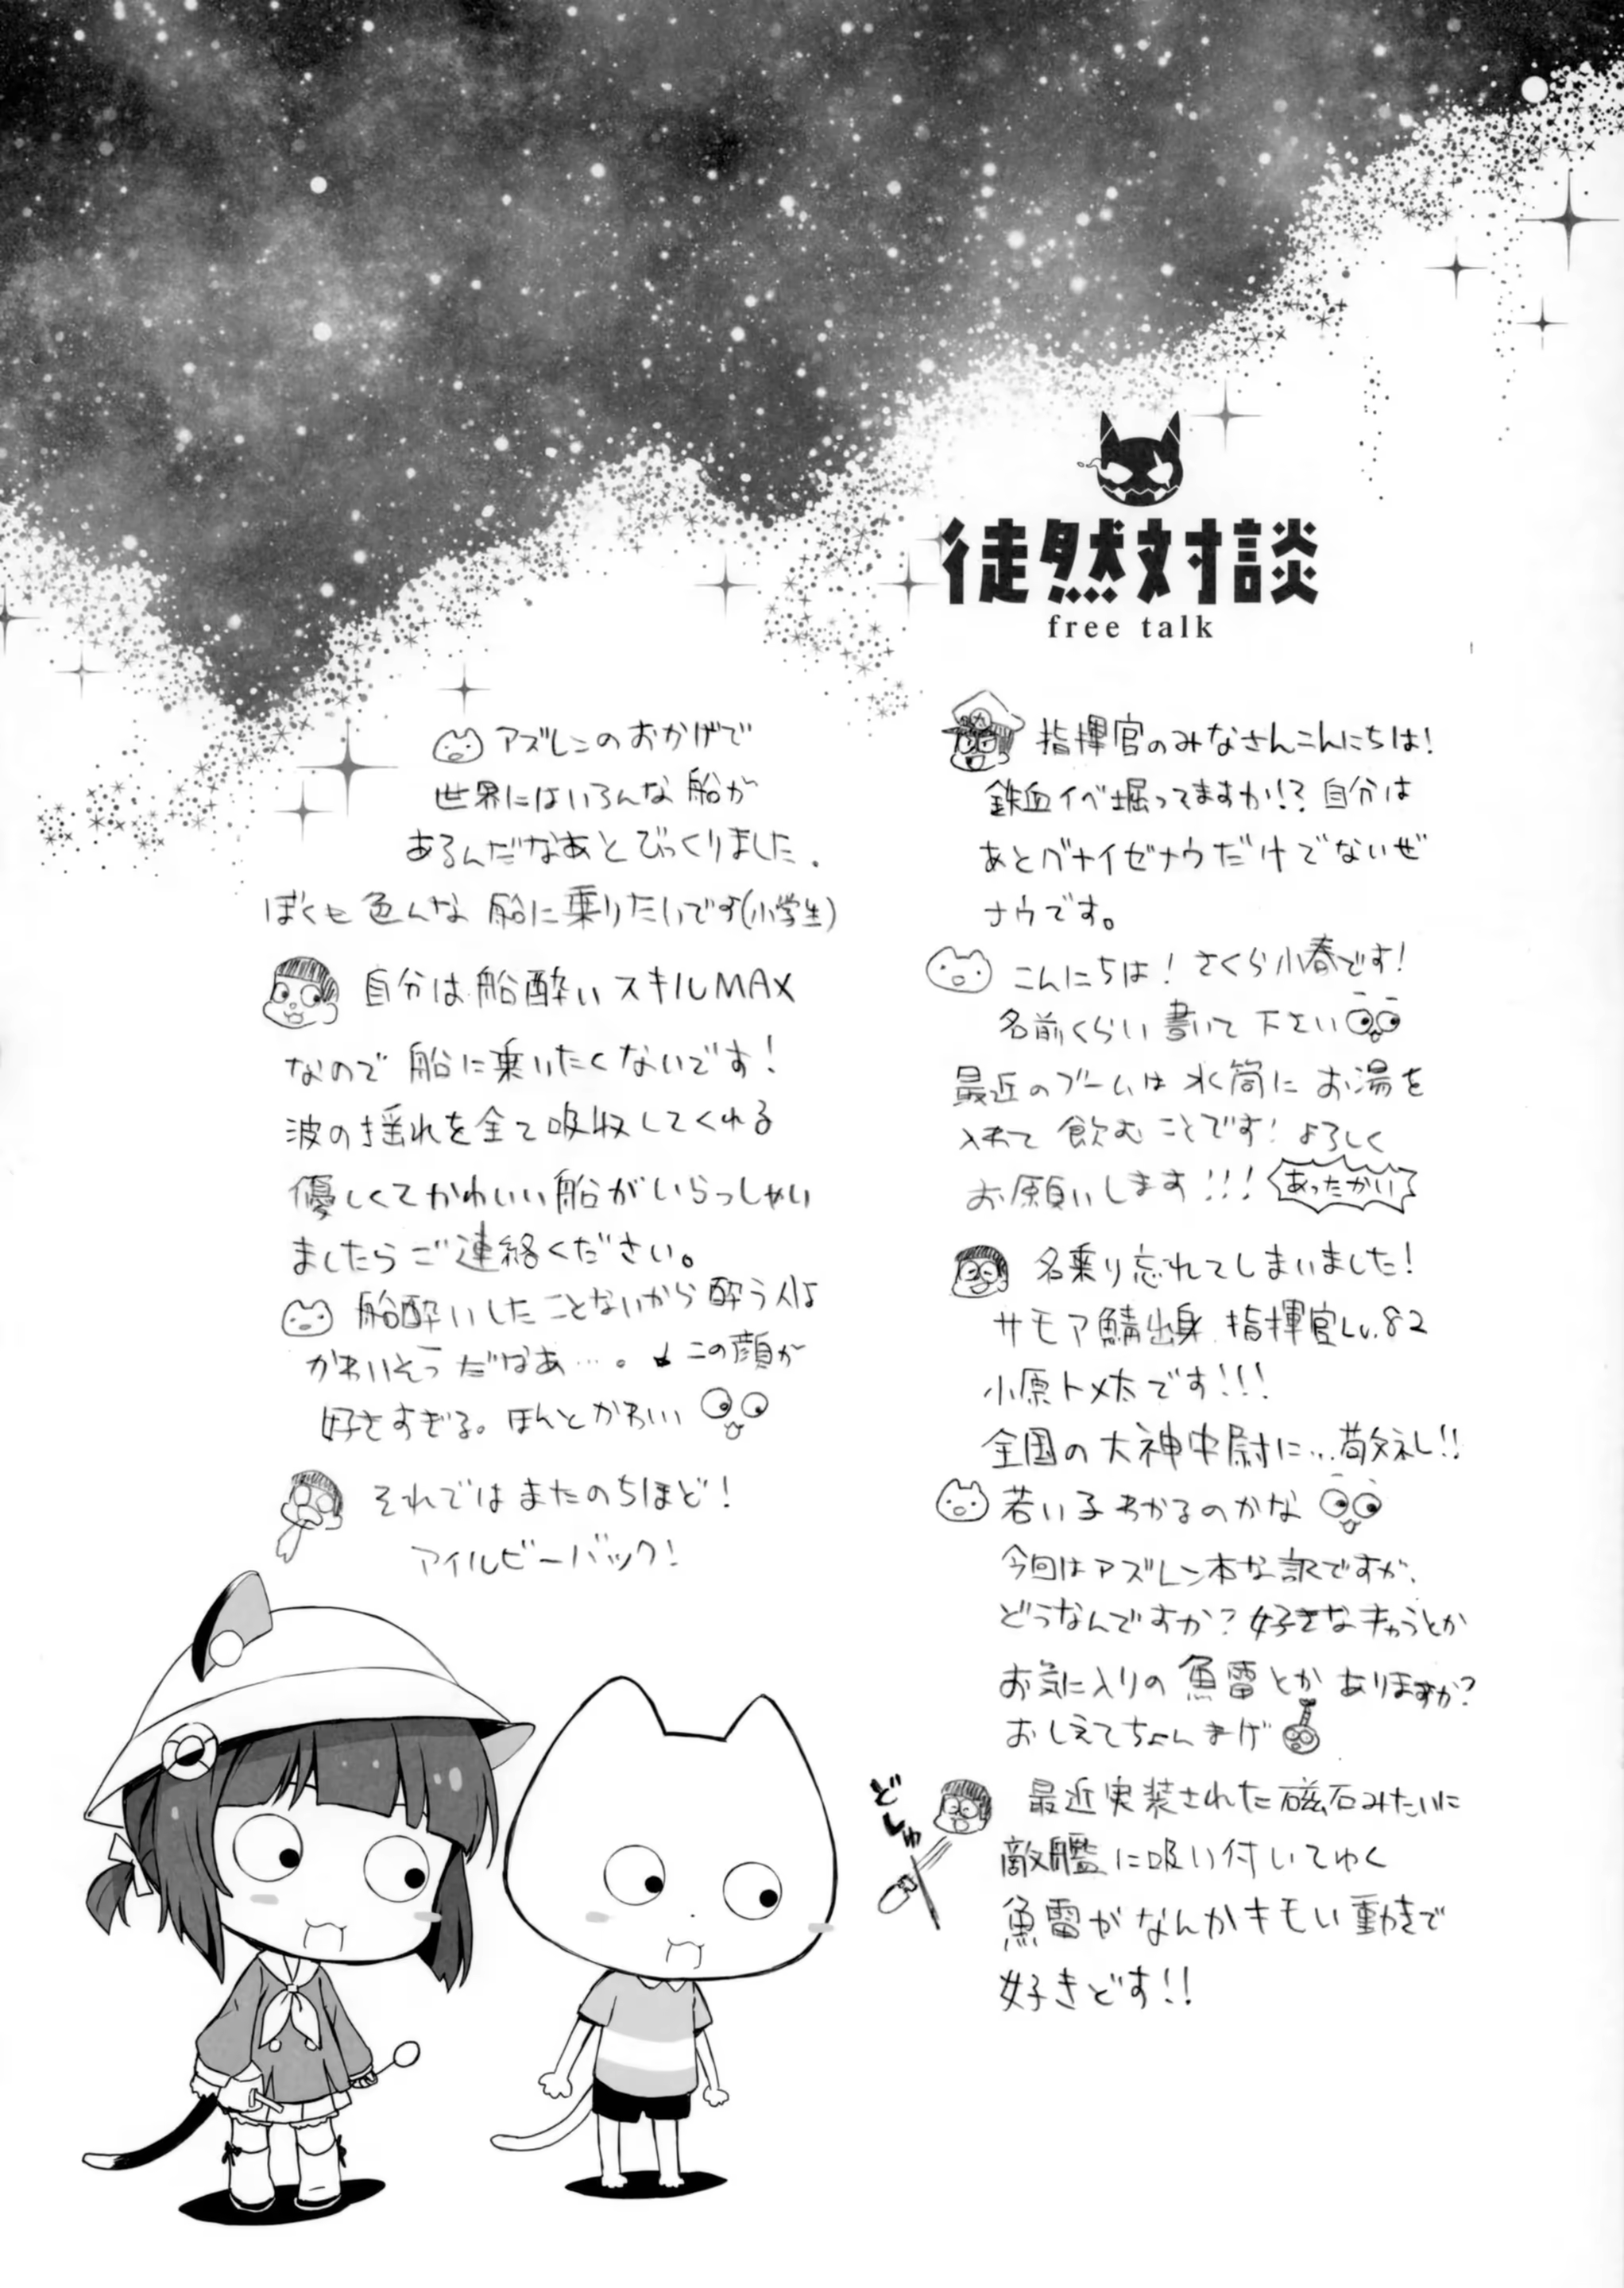 徒然対談
free talk
指揮官のみなさんこんにちは!
鉄血イベ堀ってますか!? 自分は
あとグナイゼナウだけでないぜ
ナウです。
こんにちは! さくら小春です!
名前くらい書いて下さい
最近のブームは水筒にお湯を
入れて飲むことです! よろしく
お願いします!!! あったかい
名乗り忘れてしまいました!
サモア鯖出身 指揮官Lv.82
小原トメ太です!!!
全国の大神中尉に…敬礼!!
若い子わかるのかな
今回はアズレン本な訳ですが、
どうなんですか? 好きなキャラとか
お気に入りの魚雷とかありますか?
おしえてちょんまげ
どしゅ
最近実装された磁石みたいに
敵艦に吸い付いてゆく
魚雷がなんかキモい動きで
好きどす!!
アズレンのおかげで
世界にはいろんな船が
あるんだなあとびっくりました.
ぼくも色んな船に乗りたいです(小学生)
自分は船酔いスキルMAX
なので船に乗いたくないです!
波の揺れを全て吸収してくれる
優しくてかわいい船がいらっしゃい
ましたらご連絡ください。
船酔いしたことないから酔う人は
かわいそうだなあ…。 この顔が
好きすぎる。ほんとかわいい
それではまたのちほど!
アイルビーバック!